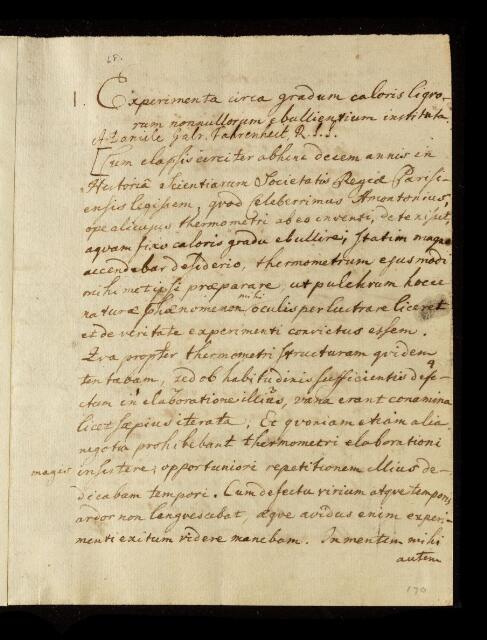 1. Experimenta circa gradum caloris liqvo-
rum nonnullorum ebullientium instituta
A Daniele Gabr. Fahrenheit, R....
Cum elapsis circiter abhinc decem annis in
Historiâ Scientiarum Societatis Regiæ Parisi-
ensis legissem, qvod Celeberrimus Amontonius,
ope alicujus thermometri ab eo inventi, detexisset,
aqvam fixo caloris gradu ebullire; statim magno
accendebar desiderio, thermometrum ejusmodi
mihimetipsi præparare, ut pulchrum hocce
naturæ Phænomenon mihi oculis perlustrare liceret
et de veritate experimenti convictus essem.
Qva propter thermometri structuram qvidem
tentabam, sed ob habitudinis sufficientis defe-
ctum in elaboratione illius, vana erant conamina
licet sæpius iterata; Et qvoniam etiam alia
negotia prohibebant thermometri elaborationi
magis insistere, opportuniori repetitionem illius de-
dicabam tempori. Cum defectu virium atqve temporis
ardor non langvescebat, æqve avidus enim experi-
menti exitum videre manebam. In mentem mihi
autem
170